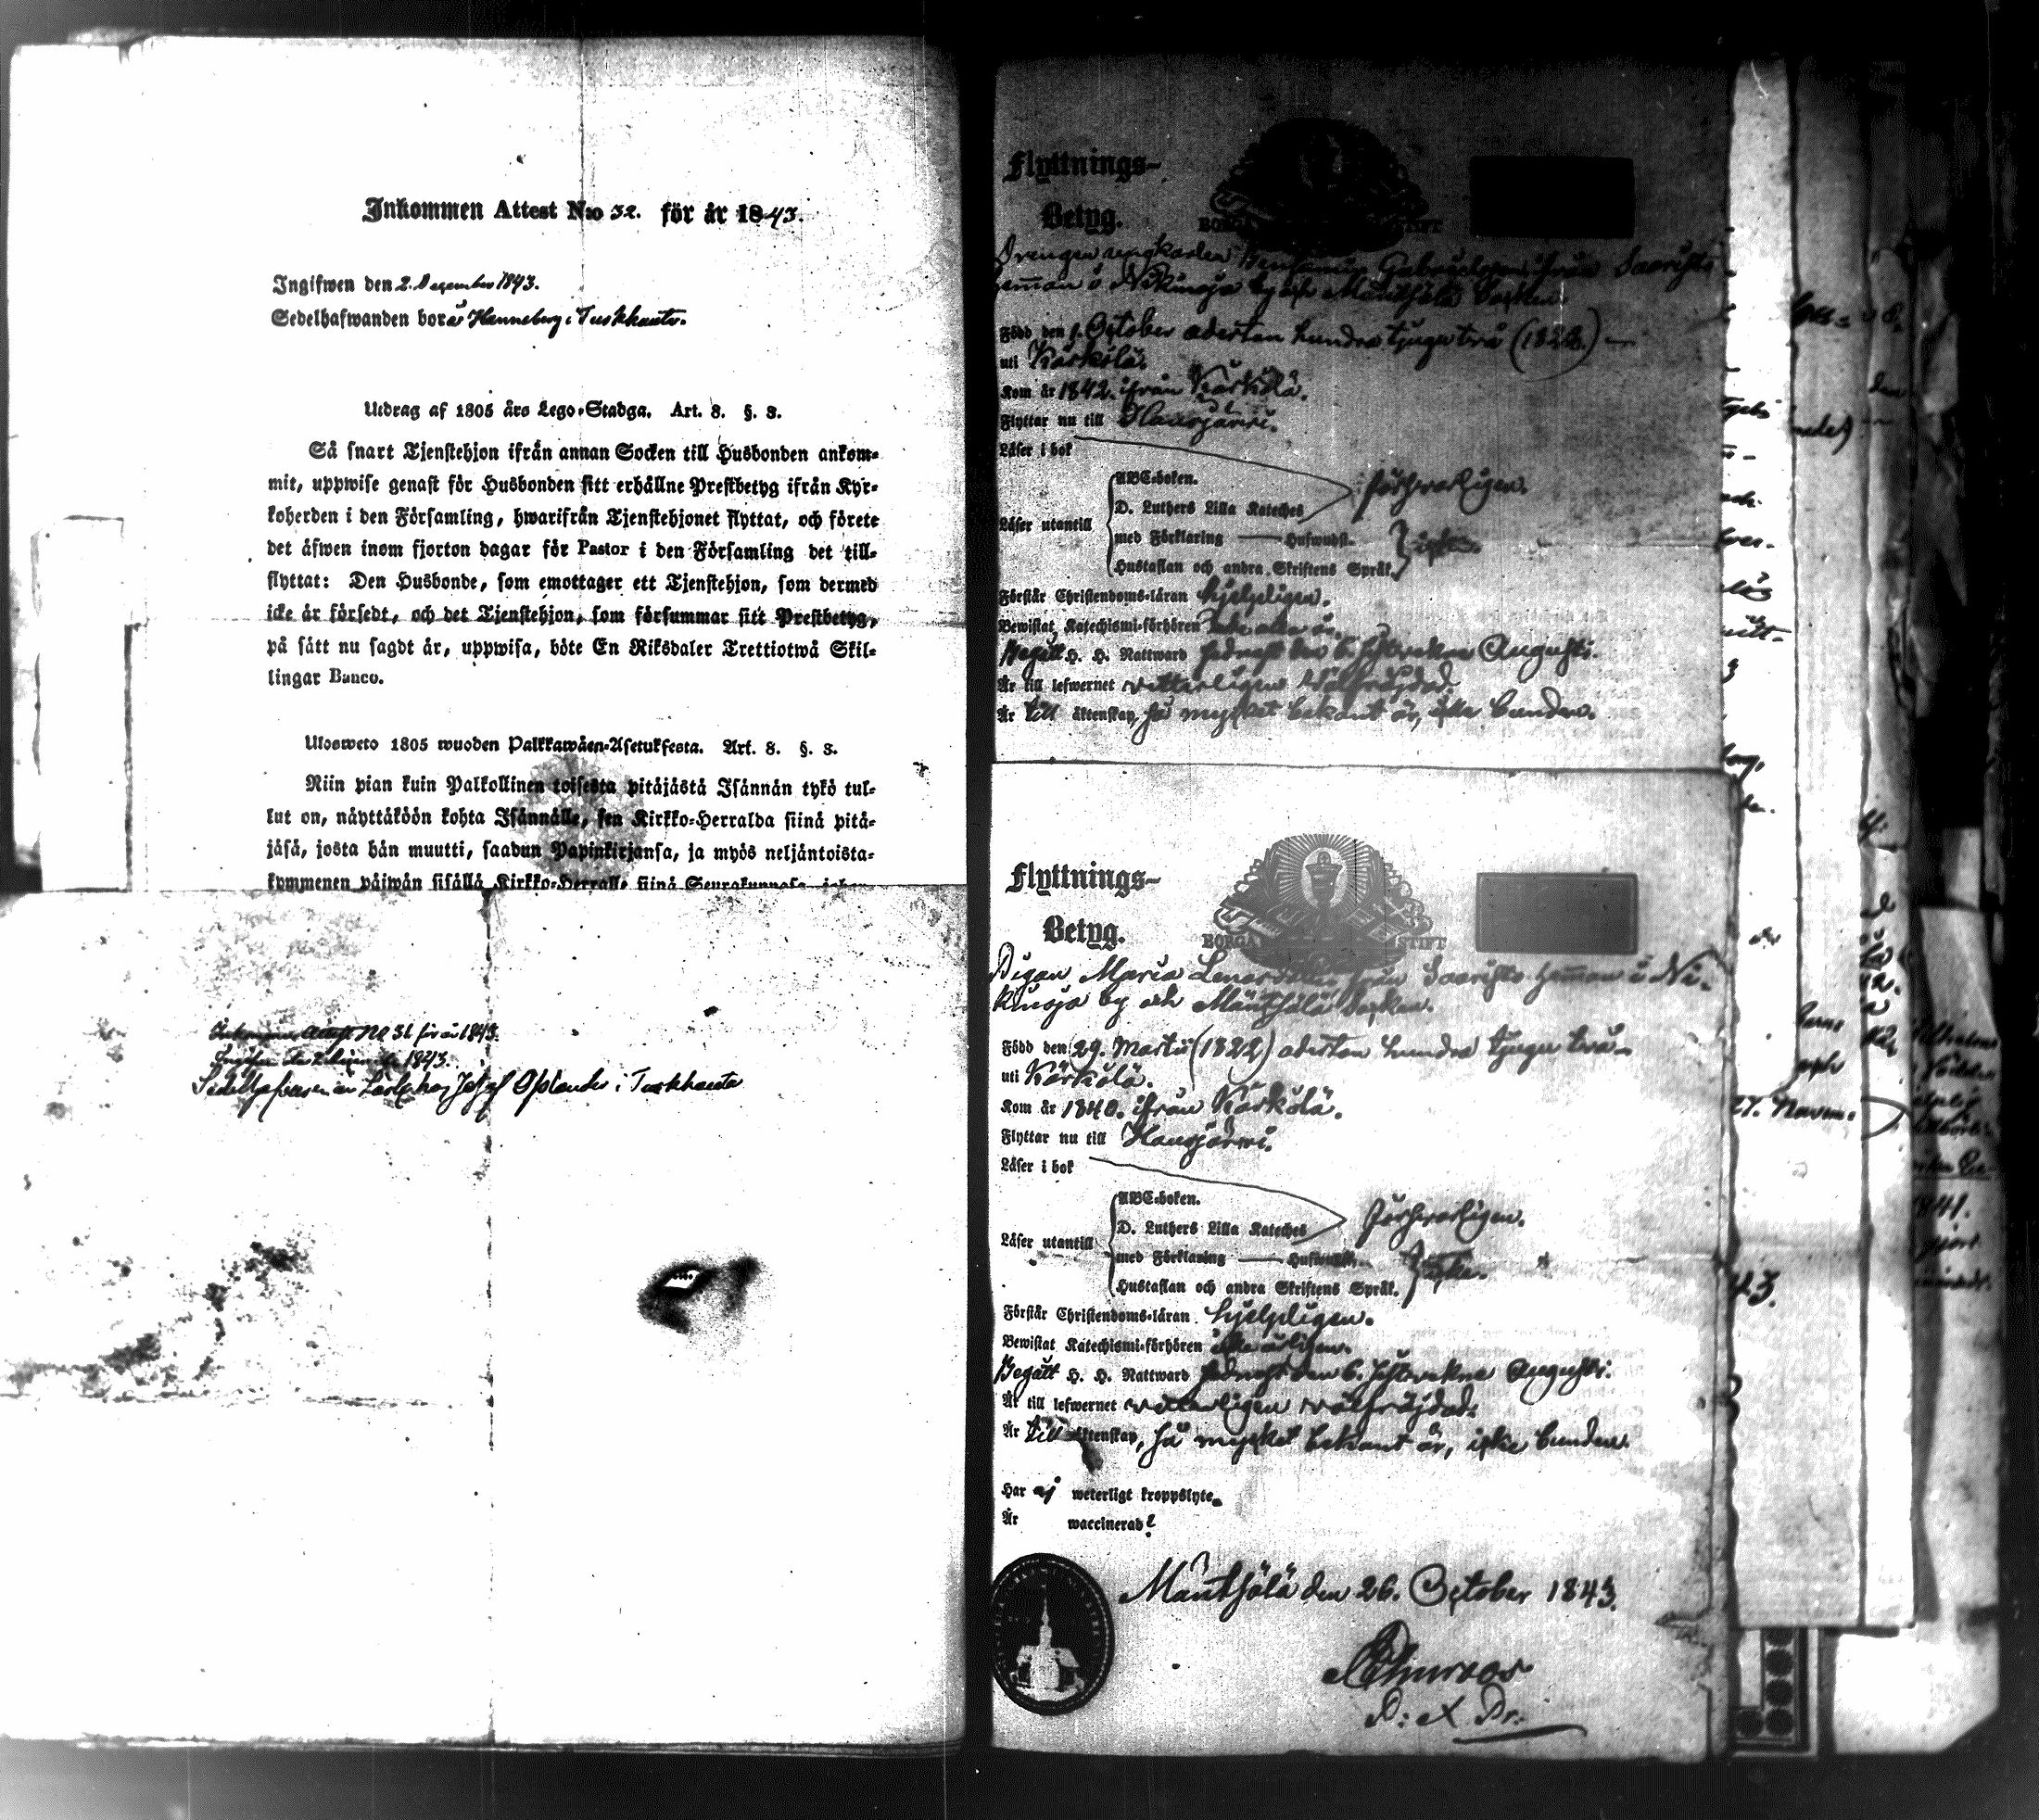 Inkommen Attest N:o 32. för år 1843.
Ingifwen den 2. December 1843.
Sedelhafwanden bor å Hanneberg i Turkhauta.
Utdrag af 1805 års Lego-Stadga. Art. 8. §. 3.
Så snart Tjenstehjon ifrån annan Socken till Husbonden ankom-
mit, uppwise genast för Husbonden sitt erhållne Prestbetyg ifrån Kyr-
koherden i den Församling, hwarifrån Tjenstehjonet flyttat, och förete
det äfwen inom fjorton dagar för Pastor i den Församling det till-
flyttat: Den Husbonde, som emottager ett Tjenstehjon, som dermed
icke är försedt, och det Tjenstehjon, som försummar sitt Prestbetyg,
på sätt nu sagdt är, uppwisa, böte En Riksdaler Trettiotwå Skil-
lingar Banco.
Ulosweto 1805 wuoden Palkkawäen-Asetuksesta. Art. 8. §. 3.
Niin pian kuin Palkollinen toisesta pitäjästä Isännän tykö tul-
lut on, näyttäköön kohta Isännälle, sen Kirkko-Herralda siinä pitä-
jäsä, josta hän muutti, saadun Papinkirjansa, ja myös neljäntoista-
kymmenen päiwän sisällä Kirkko-Herralle siinä Seurakunnasa
Inkommen Attest No 31 för år 1843.
Ingifven den 2 1843.
i Turkhauta
Flyttnings-
Betyg.
BORGÅ STIFT
Drengen ungkarlen Benjamin ifrån Saaristo
hemman i Nikinoja by och Mäntsälä Socken
Född den 1. October aderton hundra tjugu två (1822.)
uti Kärkölä.
Kom år 1842. ifrån Kärkölä.
Flyttar nu till Hausjärvi.
Läser i bok
ABC-boken.
D. Luthers Lilla Kateches
försvarligen.
Läser utantill
med Förklaring — Hufwudst.
Hustaflan och andra Skriftens Språk.
icke.
Förstår Christendoms-läran hjelpligen.
Bewistat Katechismi-förhören icke alla år.
Begått H. H. Nattward sednast den 6. Augusti.
Är till lefwernet vitterligen välfrejdad.
Är till äktenskap, så mycket bekant är, icke bunden.
Flyttnings-
Betyg.
BORGÅ STIFT
Pigan Maria ifrån Saaristo hemman i Ni-
kinoja by och Mäntsälä Socken.
Född den 29. Martii (1822) aderton hundra tjugu två
uti Kärkölä.
Kom år 1840. ifrån Kärkölä.
Flyttar nu till Hausjärvi.
Läser i bok
ABC-boken.
D. Luthers Lilla Kateches
försvarligen.
Läser utantill
med Förklaring — Hufwudst.
Hustaflan och andra Skriftens Språk.
icke.
Förstår Christendoms-läran hjelpligen.
Bewistat Katechismi-förhören icke årligen.
Begått H. H. Nattward sednast den 6. Augusti.
Är till lefwernet vitterligen välfrejdad.
Är till äktenskap, så mycket bekant är, icke bunden.
Har ej weterligt kroppslyte.
Är waccinerad?
Mäntsälä den 26. October 1843.
27. Novem:
43.
1841.